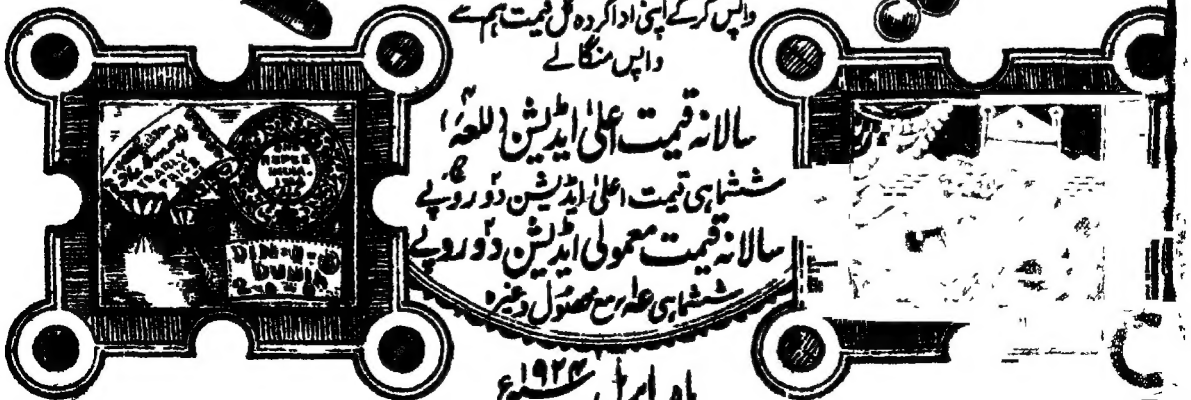 واپس کرکے اپنی ادا کردہ کل قیمت ہم سے
واپس منگالے
سالانہ قیمت اعلیٰ ایڈیشن (للعہ)
ششماہی قیمت اعلیٰ ایڈیشن دو روپے
سالانہ قیمت معمولی ایڈیشن دو روپے
ششماہی عہ مع محصول وغیرہ
ماہ اپریل ۱۹۲۴ء
YEARLY
PRICE
ONE
RUPEE
INDIA
DIN-O-
DUNIA